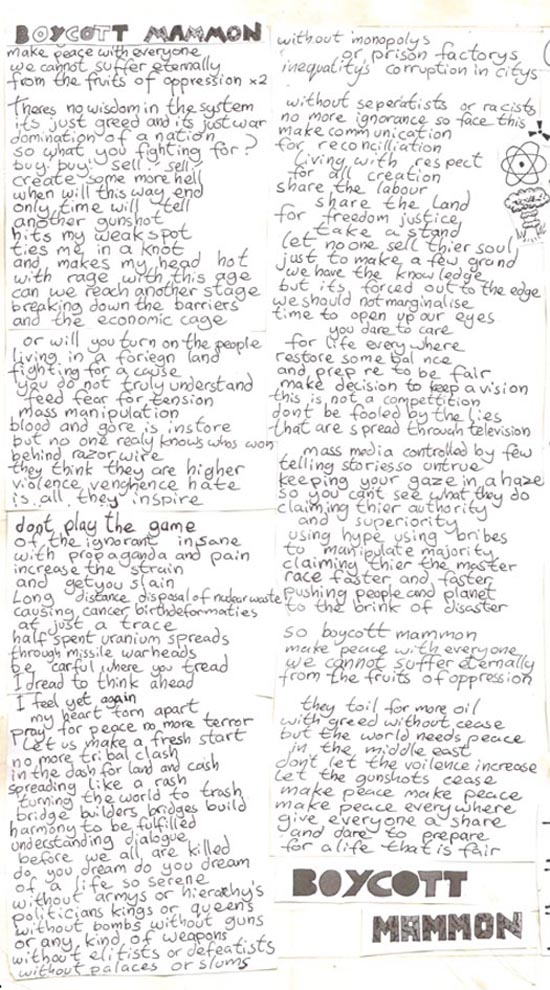 BOYCOTT MAMMON
make peace with everyone
we cannot suffer eternally
from the fruits of oppression x2
Theres no wisdom in the system
its just greed and its just war
domination of a nation
so what you fighting for?
buy buy sell sell
create some more hell
when will this way end
only time will tell
another gunshot
hits my weak spot
ties me in a knot
and makes my head hot
with rage with this age
can we reach another stage
breaking down the barriers
and the economic cage
or will you turn on the people
living in a foriegn land
fighting for a cause
you do not truly understand
feed fear for tension
mass manipulation
blood and gore is instore
but no one realy knows whos won
behind razor wire
they think they are higher
violence, venghence hate
is all they inspire
dont play the game
of the ignorant insane
with propaganda and pain
increase the strain
and get you slain
Long distance disposal of nuclear waste
causing cancer birthdeformaties
at just a trace
half spent uranium spreads
through missile warheads
be carful where you tread
I dread to think ahead
I feel yet again
my heart torn apart
pray for peace no more terror
Let us make a fresh start
no more tribal clash
in the dash for land and cash
spreading like a rash
turning the world to trash
bridge builders bridges build
harmony to be fulfilled
understanding dialogue
before we all are killed
do you dream do you dream
of a life so serene
without armys or hierachy's
politicians kings or queens
without bombs without guns
or any kind of weapons
without elitists or defeatists
without palaces or slums
without monopolys
or prison factorys
inequality's corruption in citys
without seperatists or racists
no more ignorance so face this
make communication
for reconcilliation
living with respect
for all creation
share the labour
share the land
for freedom justice
take a stand
let no one sell thier soul
just to make a few grand
we have the knowledge
but its forced out to the edge
we should not marginalise
time to open up our eyes
you dare to care
for life everywhere
restore some bal nce
and prep re to be fair
make decision to keep a vision
this is not a competition
dont be fooled by the lies
that are spread through television
mass media controlled by few
telling stories so untrue
keeping your gaze in a haze
so you cant see what they do
claiming thier authority
and superiority
using hype using bribes
to manipulate majority
claiming thier the master
race faster and faster
pushing people and planet
to the brink of disaster
so boycott mammon
make peace with everyone
we cannot suffer eternally
from the fruits of oppression
they toil for more oil
with greed without cease
but the world needs peace
in the middle east
don't let the voilence increase
Let the gunshots cease
make peace make peace
make peace everywhere
give everyone a share
and dare to prepare
for a life that is fair
BOYCOTT
MAMMON